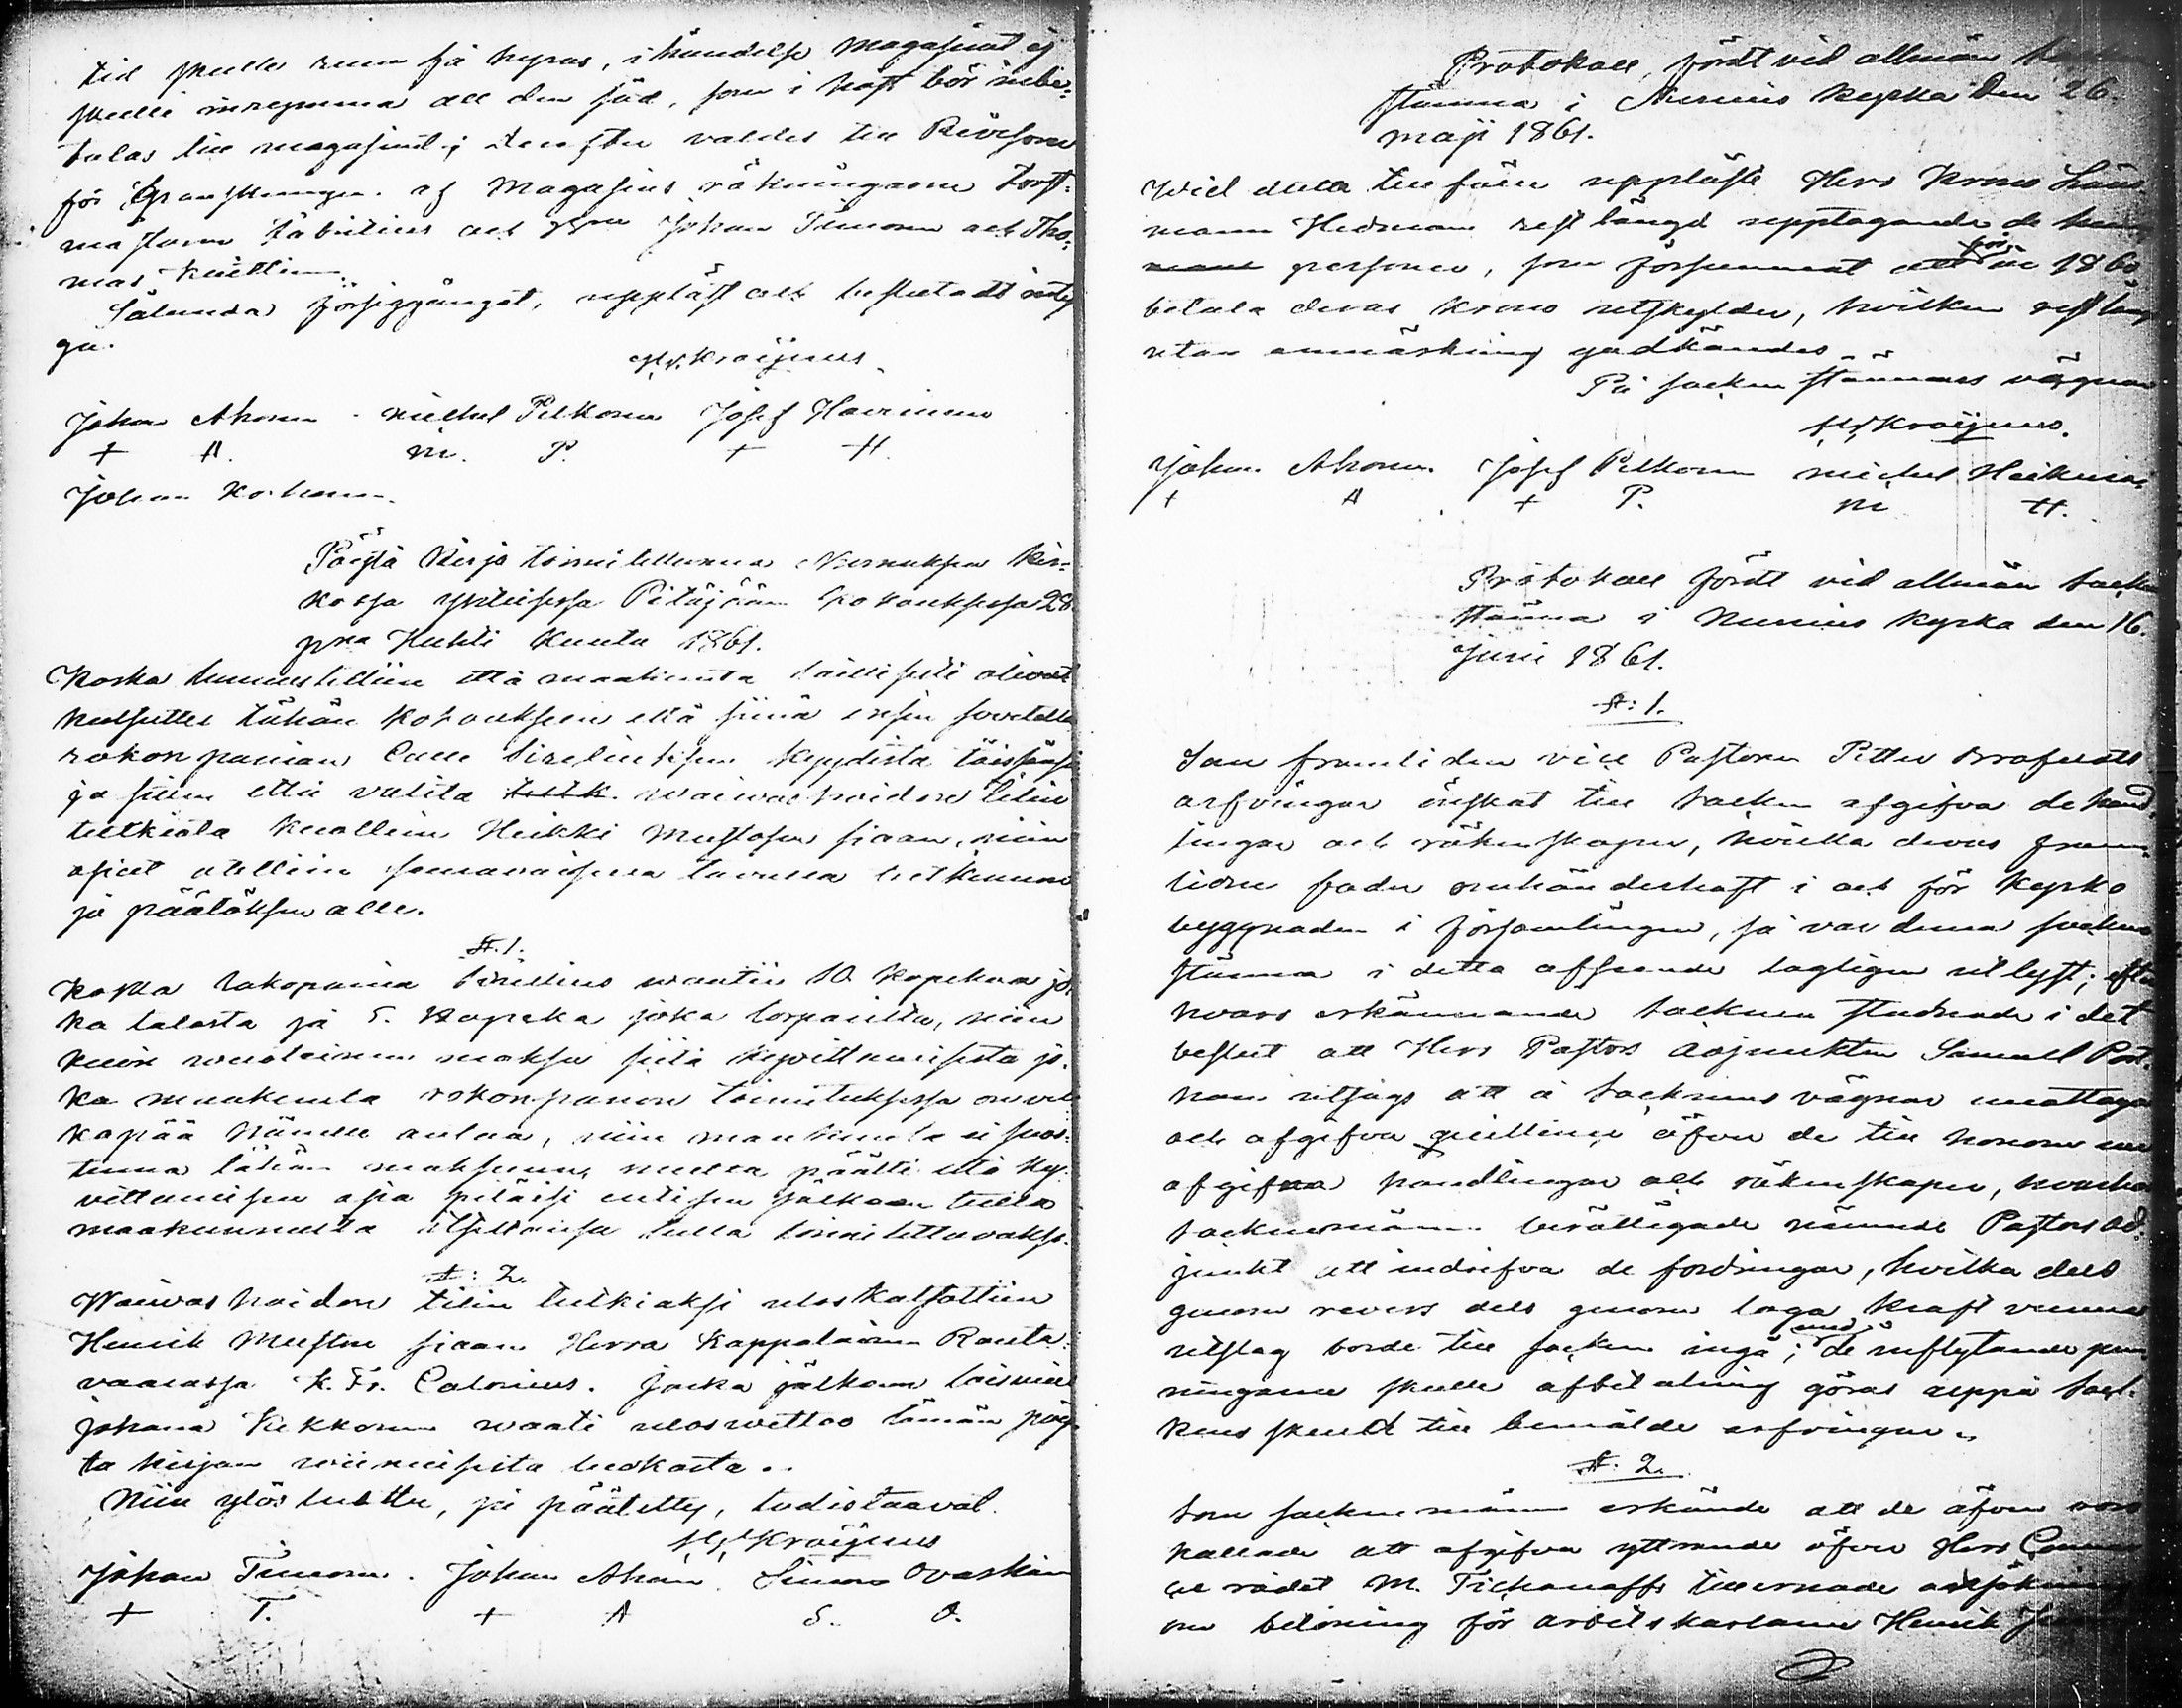 tid skulle rum få hyras, i händelse Magasinet ej
skulle inrymma all den säd, som i höst bör inbe-
talas till magasinet; derefter valdes till Revisorer
för granskningen af Magasins räkningarne Forst-
mästaren Tabelius och Johan Timonen och Tho-
mas
Sålunda förehggånget, uppläst och beslutadt intyga
ga.
Kroijerus
Johan Ahonen Michel Pelkonen Josef Havrinen
+ A. M. P. + H.
Johan Korhonen.
Pöytä Kirja toimitettunna Nurmeksen Kir-
kossa yhteisessä Pitäjään kokouksessa 28
pnä Huhti Kuuta 1861.
Koska tunnustettiin että maakunta laillisesti olivat
kutsuttu tähän kokoukseen että siinä ensin sovitella
rokon panian Calle Sirelinksen kyydistä
ja siitten että valita waiwashoidon tilin
tutkiata kuolleen Heikki Mustosen siaan, niin
asiat otettiin seuraavaisessa tavassa tutkinnon
ja päätöksen alle.
§. 1.
Koska rokopania Sirelius waatii 10 kopekaa jo-
ka talosta ja 5. kopeka joka torparilta, niin
kuin wuotuinen maksu siitä kyyittämisestä jo-
ka maakunta rokonpanon toimituksessa on vel-
kapää hänelle antaa, niin maakunta ei suos-
tunna tähän maksuun, mutta päätti että ky-
yittämisen asia pitäisi entisen jälkeen tulla
maakunnalta itseltänsä tulla toimitettavaksi.
§: 2.
Waiwas hoidon tilin tutkiaksi uloskatsottiin
Henrik Mustosen siaan Herra Kappalainen Rauta-
vaarassa K. Fr. Calonius. Jonka jälkeen
Johana Kekkonen waati uloswettoo tämän pöy-
tä kirjan wiimeisestä luokasta.
Niin ylös luettu, ja päätetty, todistaavat.
Kroijerus
Johan Timonen. Johan Ahonen. Simon Ovaskain
+ T. + A S. O.
Protokoll, fördt vid allmän socken
stämma i Nurmis kyrka den 26.
maji 1861.
Wid detta tillfälle uppläste Herr Krono Läns-
mann Hedman restlängd upptagande de
personer, som försummat att för år 1860
betala deras krono utskylder, hvilken restlängd
utan anmärkning godkändes.
På socken stämmans vägnar
Kroijerus.
Johan Ahonen Josef Pelkonen Michel Heikurai-
+ A + P. M H.
Protokoll fördt vid allmän socken
stämma i Nurmis kyrka den 16.
Juni 1861.
§: 1.
Som framlidne vice Pastoren Petter
arfvingar önskat till socken afgifva de hand-
lingar och räkenskaper, hvilka deras fram-
lidne fader omhänderhaft i och för kyrko
byggnaden i församlingen, så var denna socken
stämma i detta afseende lagligen utlyst; efter
hvars erkännande socknen stadnade i det
beslut att Herr Pastors Adjunkten Samuel
utsågs att å socknens vägnar emottaga
och afgifva quittence öfver de till honom
afgifna handlingar och räkenskaper,
sockenmännen berättigade nämnde Pastors Ad-
junkt att indrifva de fordringar, hvilka dels
genom revers dels genom laga kraft vunna
utslag borde till socken ingå; med de influtande pen-
ningarne skulle afbetalning göras uppå soc-
kens skuld till bemälde arfvingar.
§. 2.
Som sockenmännen erkände att de äfven
kallade att afgifva yttrande öfver Herr
rådet M. Tichanoffs ansökning
om belöning för arbetskarlarne Henrik